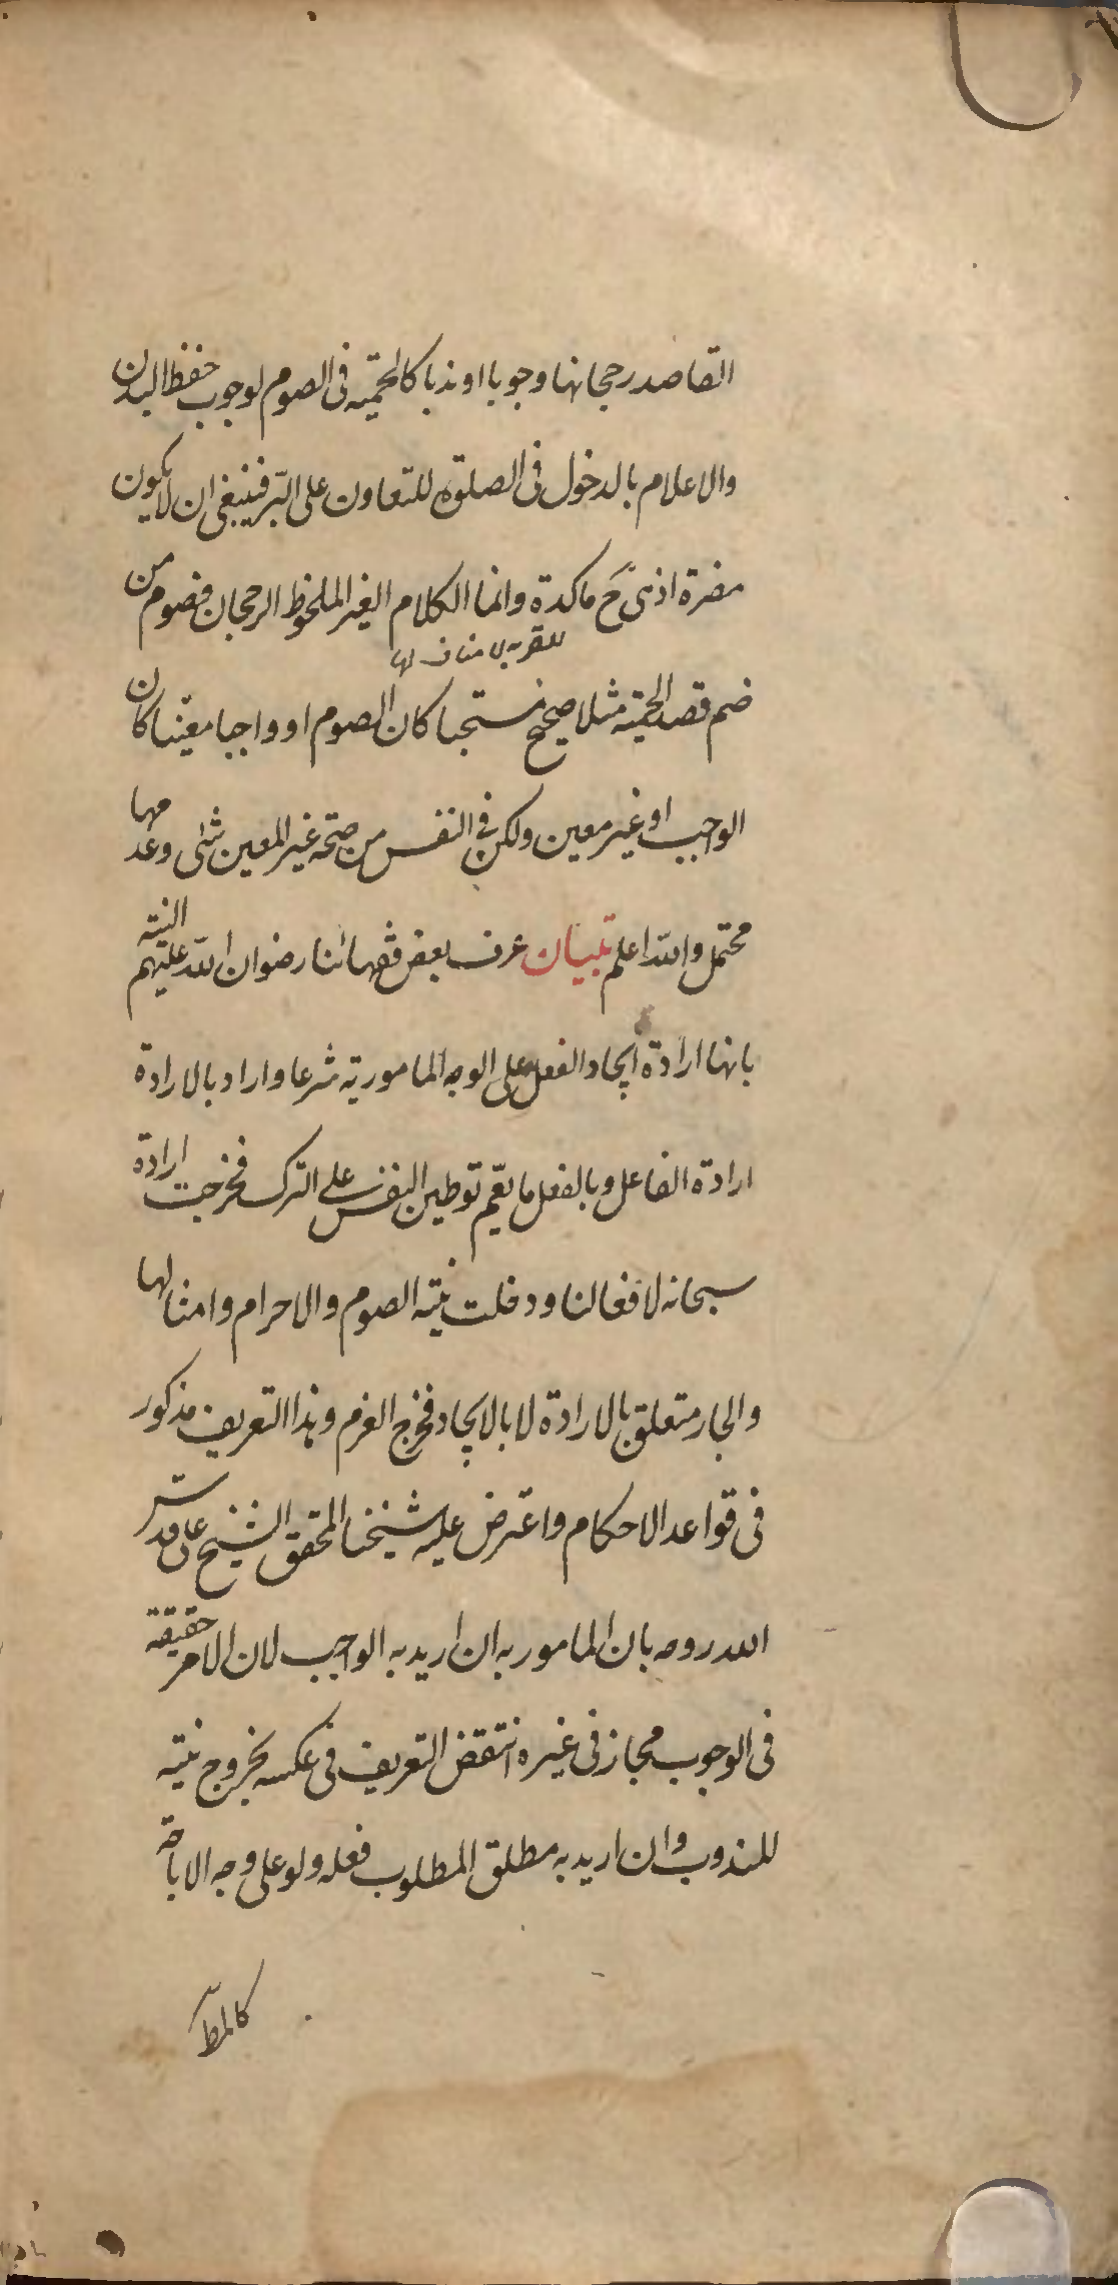 القاصد رجحانها وجوبا او ندبا كالحمية فى الصوم لوجوب حفظ البدن
والاعلام بالدخول فى الصلوة للتعاون على البرّ فينبغى ان لا يكون
مضرة اذ هى ح ماكدة وانما الكلام الغير الملحوظ الرجحان فصوم من
ضم قصد الحمية مثلا صحيح مستحبا كان الصوم او واجبا معيّنا كان
الواجب او غير معين ولكن فى النفس من صحة غير المعين شئ وعدمها
محتمل والله اعلم تبيان عرف بعض فقهائنا رضوان الله عليهم النية
بانها ارادة ايجاد الفعل على الوجه المامور به شرعا واراد بالارادة
ارادة الفاعل وبالفعل ما يعّم توطين النفس على الترك فخرجت ارادة
سبحانه لافعالنا ودخلت نية الصوم والاحرام وامثالها
والجار متعلق بالارادة لا بالايجاد فخرج العزم وهذا التعريف مذكور
فى قواعد الاحكام واعترض عليه شيخنا المحقق الشيخ على قدس
الله روحه بان المامور به ان اريد به الواجب لان الامر حقيقة
فى الوجوب مجاز فى غيره انتقض التعريف فى عكسه بخروج نية
المندوب وان اريد به مطلق المطلوب فعله ولو على وجه الاباحة
كالمط